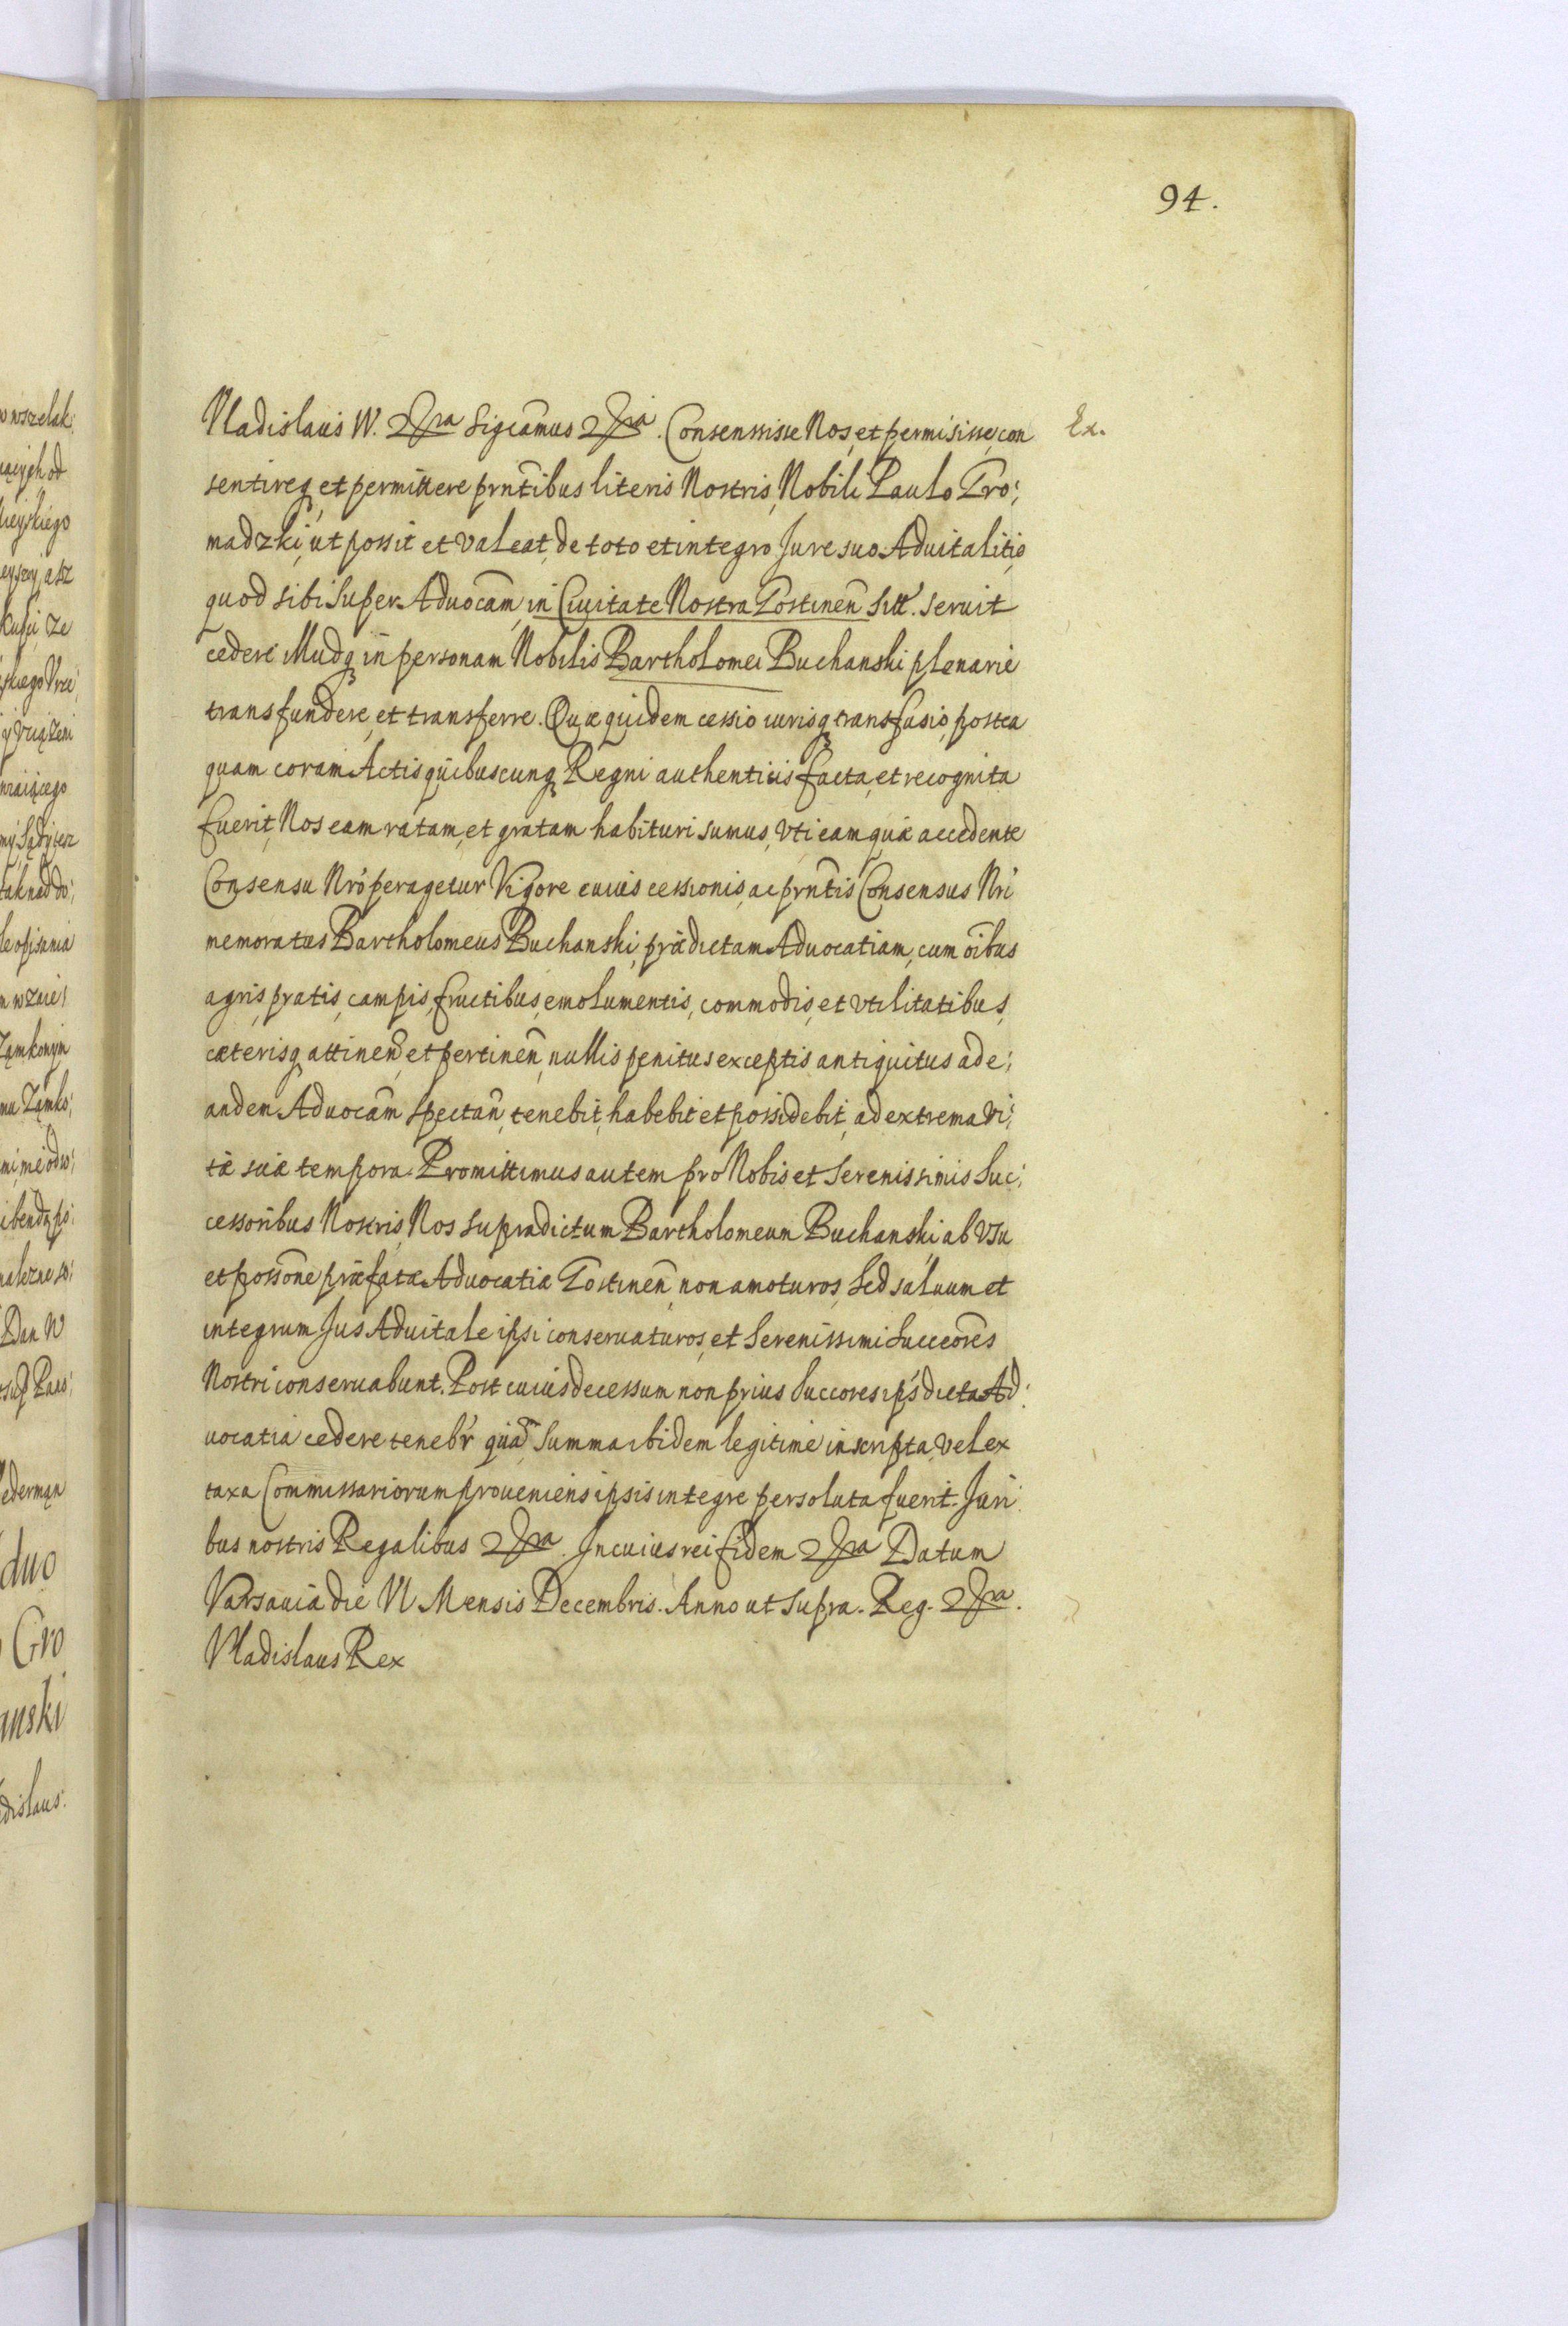 94.
Vladislaus IV. &c̃ra Sigcãmus &c̃ra. Consensisse Nos, et permisisse, con Ex.
sentireq, et permittere prñtibus literis Nostris, Nobili Paulo Gro:
madzki, ut possit et valeat, de toto et integro Jure suo Aduitalitio,
quod sibi super Aduocãm, in Ciuitate Nostra Gostinen̄ sitt. seruit
cedere illudq in personam Nobilis Bartholomei Buchanski plenarie
transfundere, et transferre. Quæ quidem cessio iurisq transfusio, postea
quam coram Actis quibuscunq Regni authenticis facta, et recognita
fuerit, Nos eam ratam, et gratam habituri sumus, vti eam quæ accedente
Consensu Nr̃o peragetur Vigore cuius cessionis, ac prñtis Consensus Nr̃i
memoratus Bartholomeus Buchanski, prædictam Aduocatiam, cum oĩbus
agris, pratis, campis, fructibus, emolumentis, commodis, et vtilitatibus,
cæterisq attinen̄, et pertinen̄, nullis penitus exceptis antiquitus ad e:
andem Aduocãm spectan̄, tenebit, habebit et possidebit, ad extrema vi:
tæ suæ tempora. Promittimus autem pro Nobis et Serenissimis Suc:
cessoribus Nostris, Nos supradictum Bartholomeum Buchanski ab vsu
et possõne præfatæ Aduocatiæ Gostinen̄ non amoturos, Sed saluum et
integrum Jus Aduitale ipsi conseruaturos, et Serenissimi Succeõres
Nostri conseruabunt. Post cuius decessum non prius Succores ip̃s dicta Ad:
uocatia cedere tenebr̃ quã Summa ibidem legitime inscripta, vel ex
taxa Commissariorum proueniens ipsis integre persoluta fuerit. Juri
bus nostris Regalibus &c̃ra. In cuius rei fidem &c̃ra Datum
Varsauiæ die VI Mensis Decembris. Anno ut supra. Reg. &c̃ra.
Vladislaus Rex